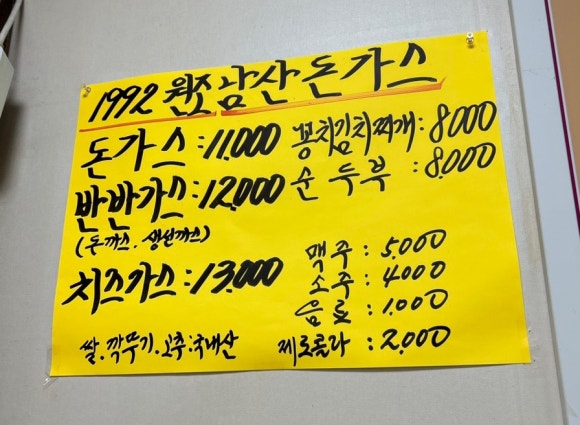 1992 원조 남산돈가스
돈가스 : 11,000
반반가스 : 12,000
(돈까스. 생선까스)
치즈가스 : 13,000
쌀. 깍뚜기. 고추 : 국내산
꽁치김치찌개 : 8000
순두부 : 8,000
맥주 : 5,000
소주 : 4000
음료 : 1,000
제로콜라 : 2,000